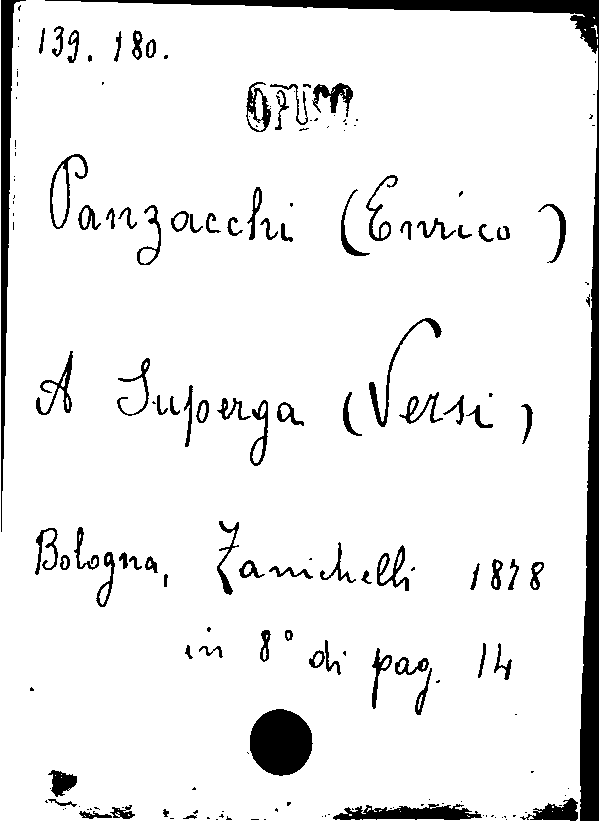 139. 180.
OPUSC.
Panzacchi (Enrico)
A Superga (Versi)
Bologna, Zanichelli 1878
in 8° di pag. 14